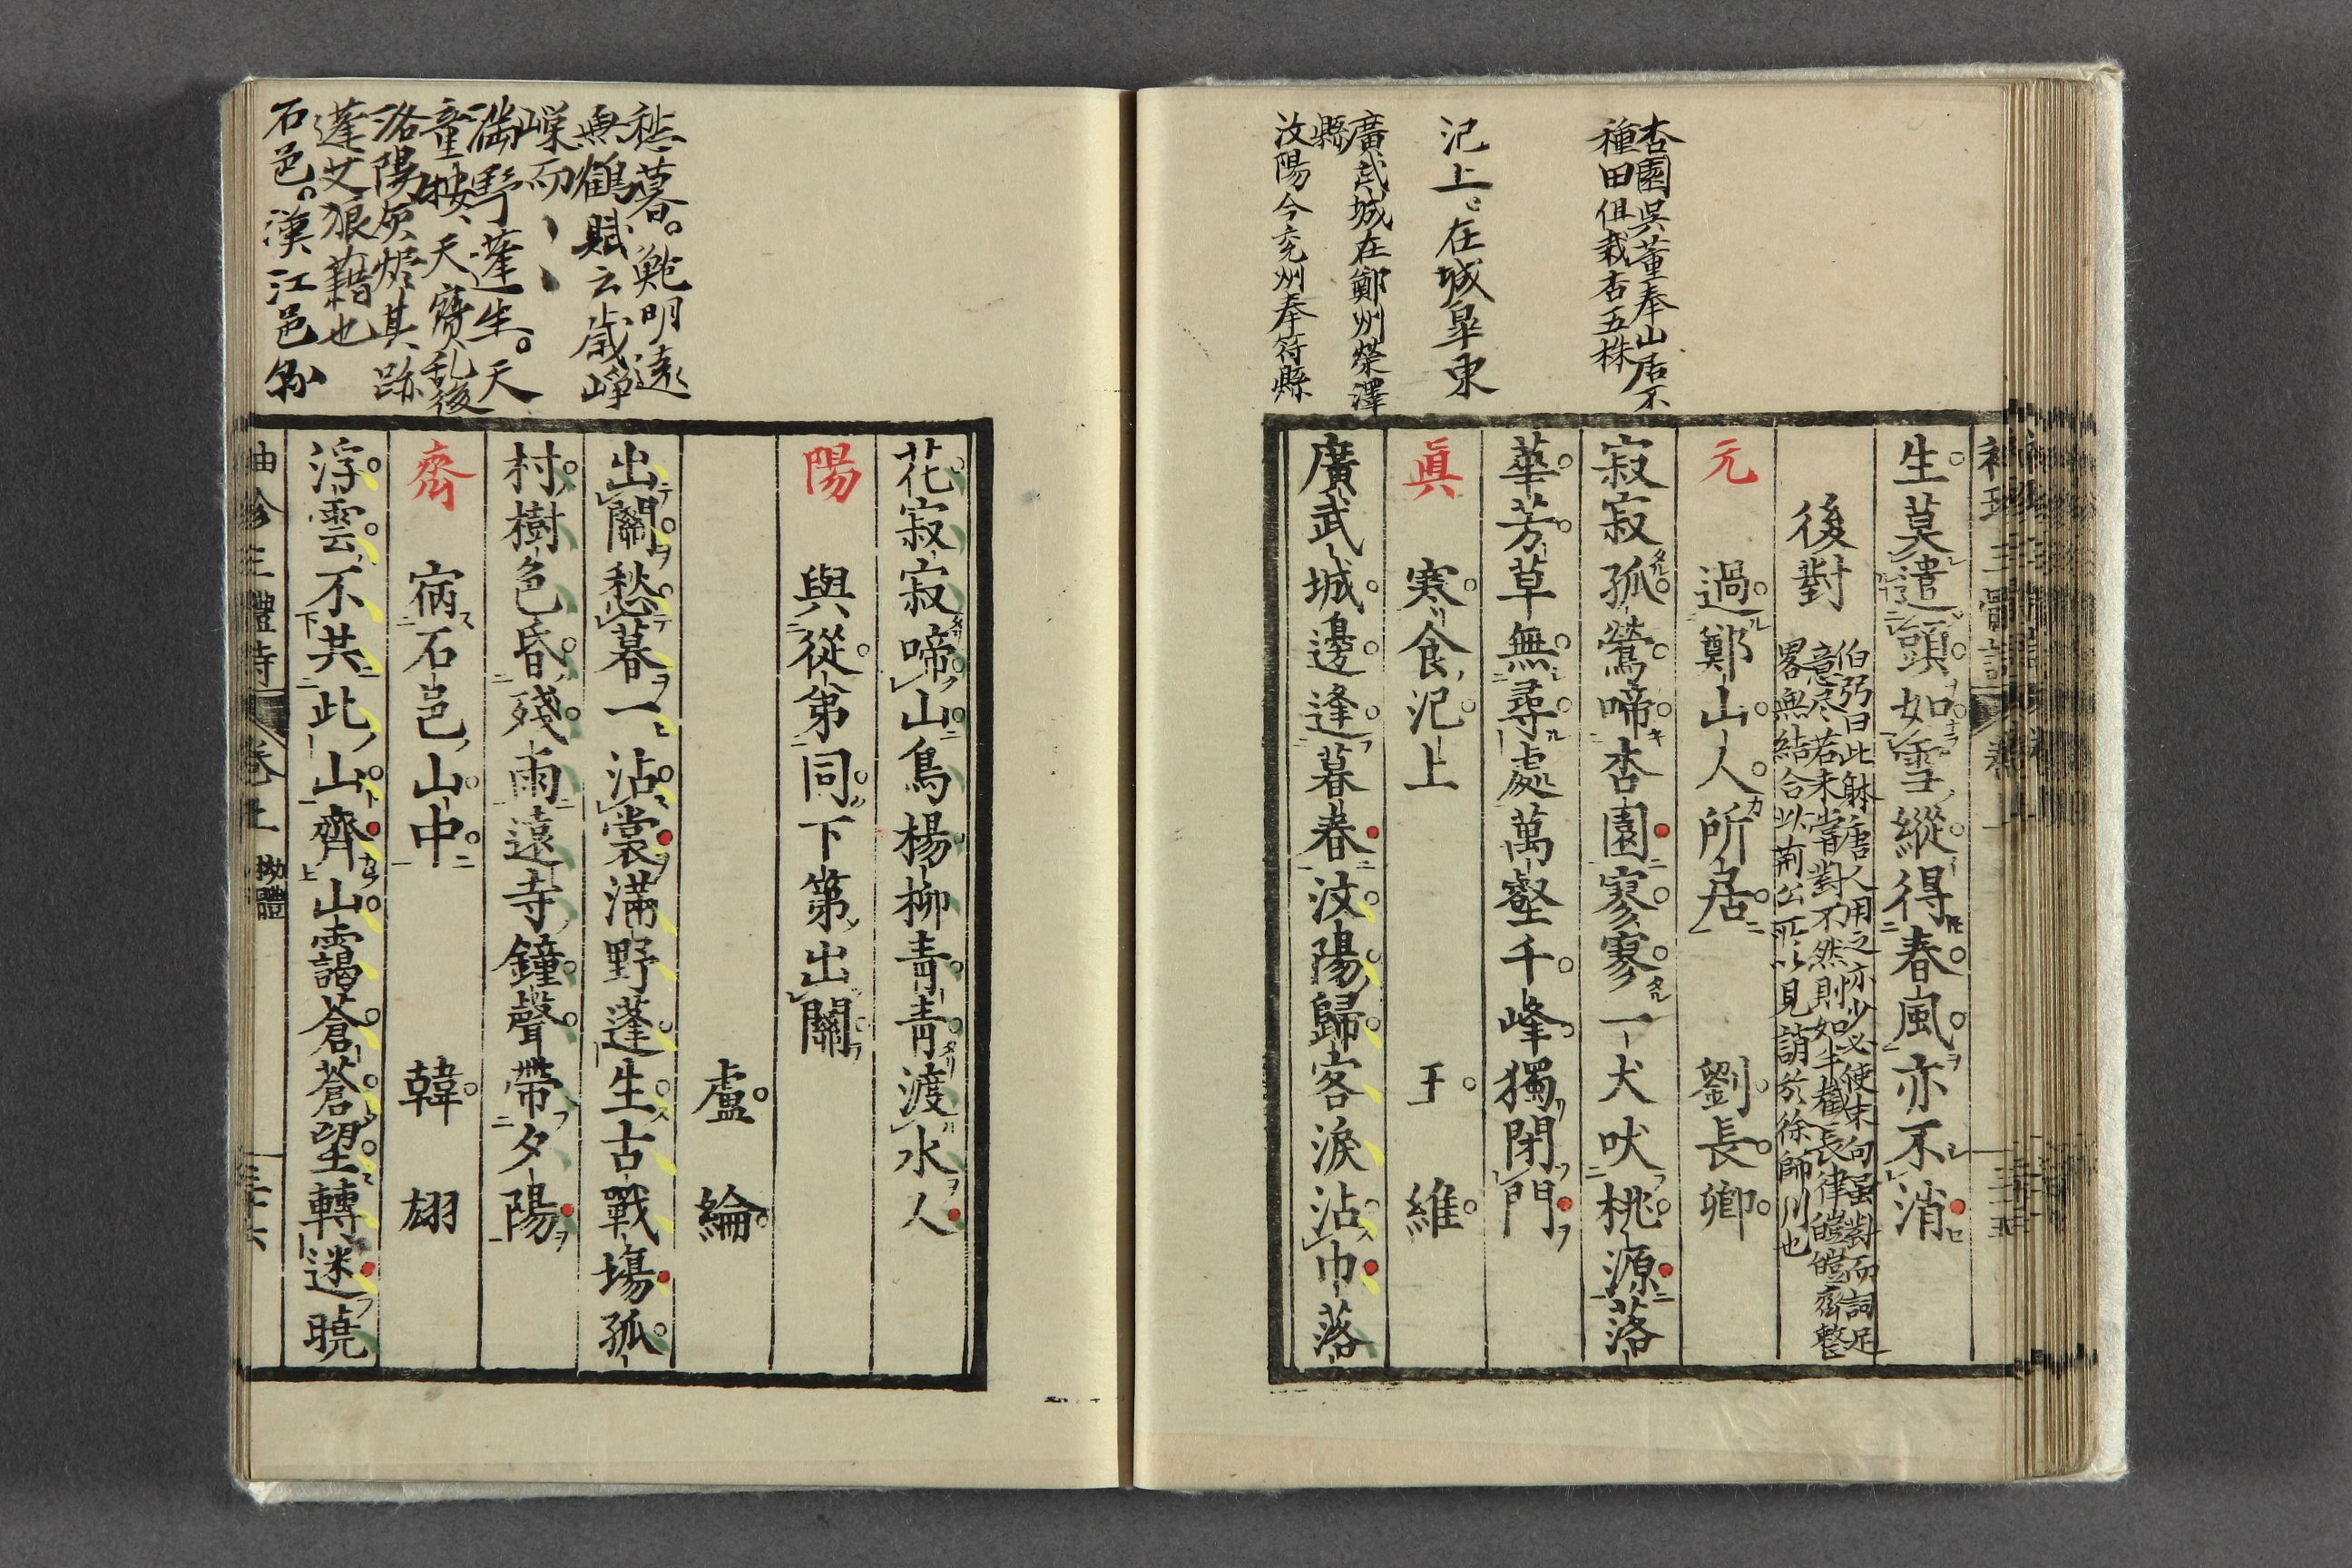 生莫遣頭如雪縱得春風亦不消
後對
伯弜曰此躰唐人用之亦少必使末句虽對而詞足
意尽若未甞對不然則如半截長律皚皚齊整
畧無結合此荊公所以見誚於徐師川也
元 過鄭山人所居 劉長卿
寂寂孤鶯啼杏園寥寥一犬吠桃源落
華芳草無尋處萬壑千峰獨閉門
眞 寒食汜上 王維
廣武城邊逢暮春汶陽歸客淚沾巾落
杏園吳董奉山居不
種田但栽杏五株
汜上在城皐東
廣武城在鄭州滎澤
縣
汶陽今兖州奉符縣
花寂寂啼山鳥楊柳青青渡水人
陽 與從第同下第出關
盧綸
出關愁暮一沾裳滿野蓬生古戰塲孤
村樹色昏殘雨遠寺鐘聲帶夕陽
齊 宿石邑山中 韓翃
浮雲不共此山齊山靄蒼蒼望轉迷曉
愁暮。鮑明遠
舞鶴賦云歲崢
嶸而、、
滿野蓬生。天
童按、天寶乱後
洛陽灰燼其跡
蓬艾狼藉也
石邑。漢江邑縣
袖珍三體詩 卷上 拗體 三十六